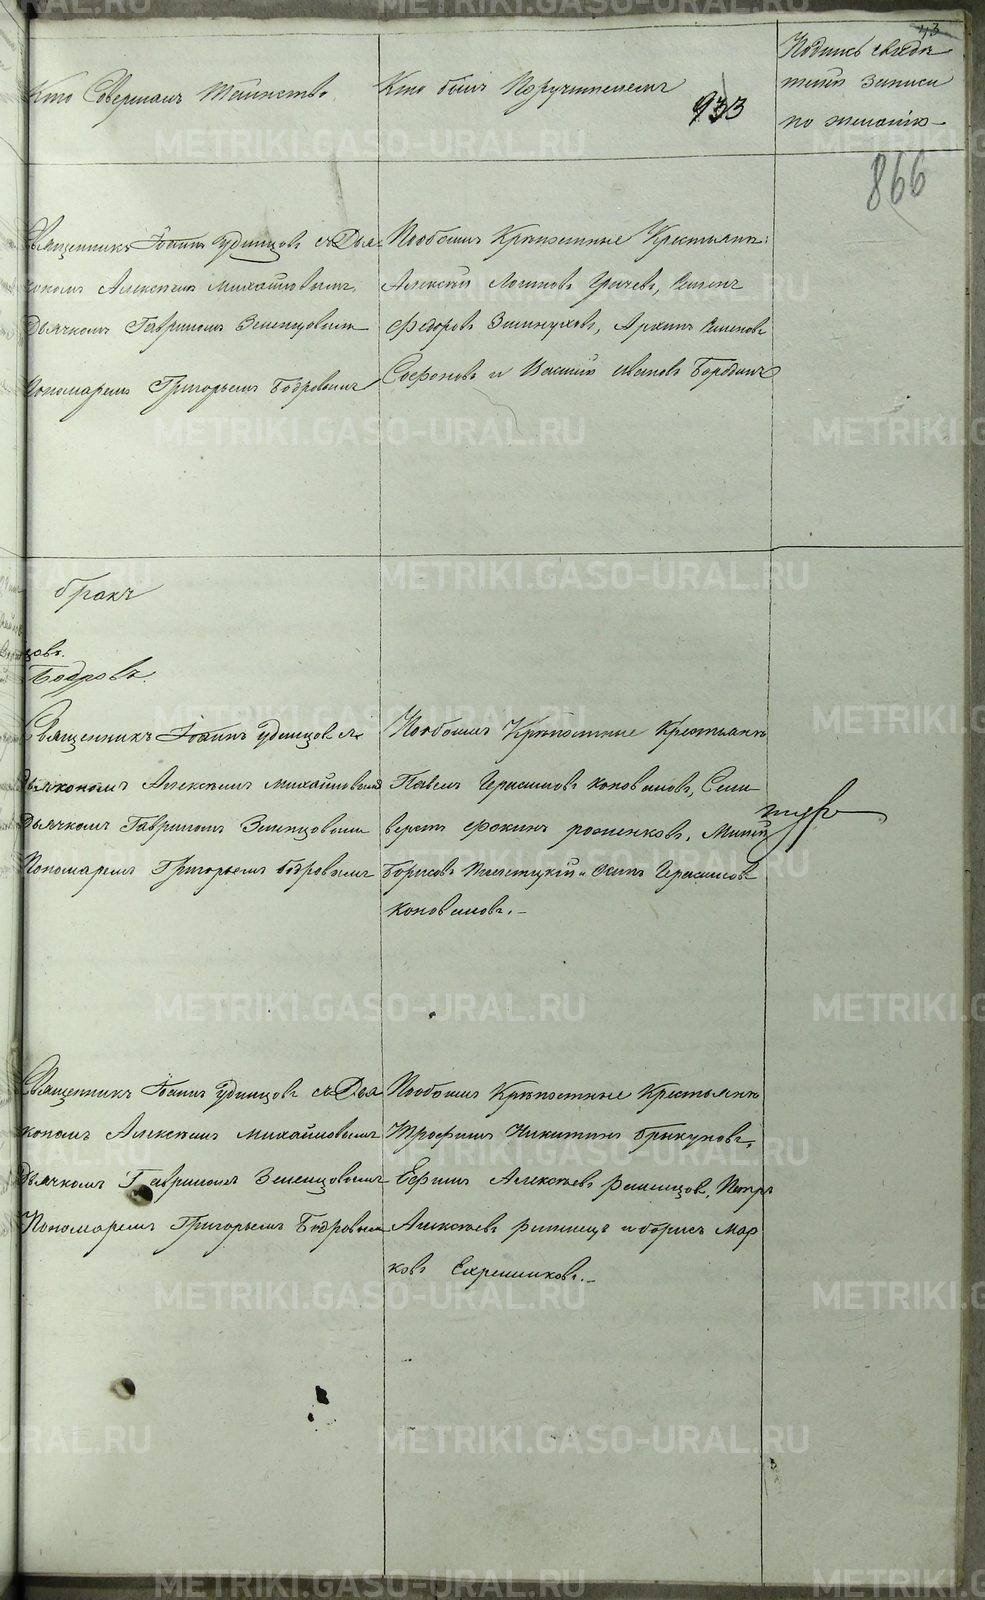 43
Кто Совершалъ Таинство
Кто былъ Поручителемъ
933
Подпись свидѣ
телей записи
по желанію
866
Священникъ Іоаннъ Удинцовъ съ Дья
кономъ Алексѣемъ Михайловымъ,
Дьячкомъ Гавриломъ Зеленцовымъ
Пономаремъ Григорьемъ Бобровымъ
Крѣпостные Крестьяне:
Алексѣй Логиновъ Грачевъ, Семенъ
Федоровъ, Архипъ Семеновъ
Софоновъ и Василій Ивановъ Бородинъ
бракъ
цовъ.
Бобровъ.
Священникъ Іоаннъ Удинцовъ съ
Дьякономъ Алексѣемъ Михайловымъ
Дьячкомъ Гавриломъ Зеленцовымъ
Пономаремъ Григорьемъ Бобровымъ
Крѣпостные Крестьяне
Павелъ Герасимовъ Коноваловъ, Сели
верстъ Фокинъ
Борисовъ и Осипъ Герасимовъ
Коноваловъ.
Священникъ Іоаннъ Удинцовъ съ Дья
кономъ Алексѣемъ Михайловымъ
Дьячкомъ Гавриломъ Зеленцовымъ
Пономаремъ Григорьемъ Бобровымъ
Крѣпостные Крестьяне
Трофимъ Никитинъ Брюкуновъ,
Ефимъ Алексѣевъ, Петръ
Алексѣевъ и Борисъ Мар
ковъ
METRIKI.GASO-URAL.RU